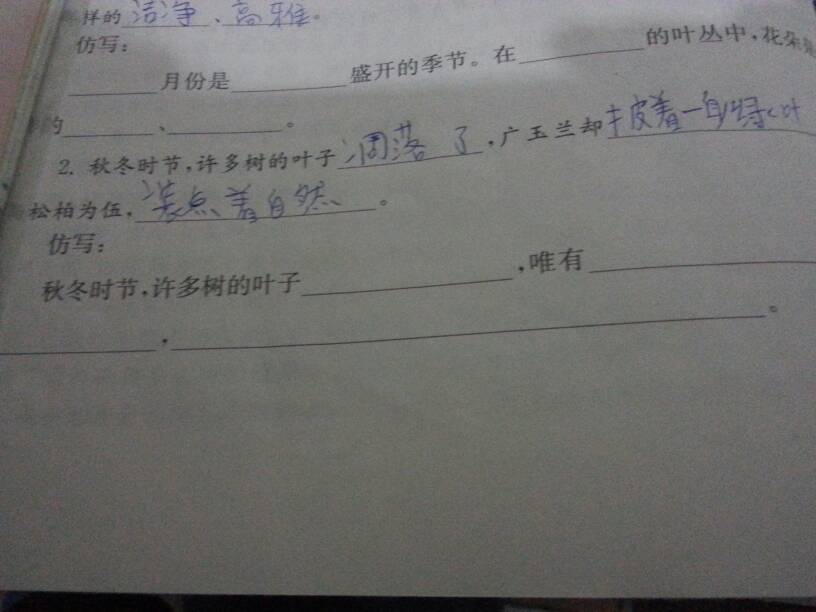 样的洁净、高雅。
仿写:
____月份是____盛开的季节。在____的叶丛中,花朵是
的____、____。
2. 秋冬时节,许多树的叶子凋落了,广玉兰却披着一身绿叶
松柏为伍,装点着自然。
仿写:
秋冬时节,许多树的叶子____,唯有____
____,____。